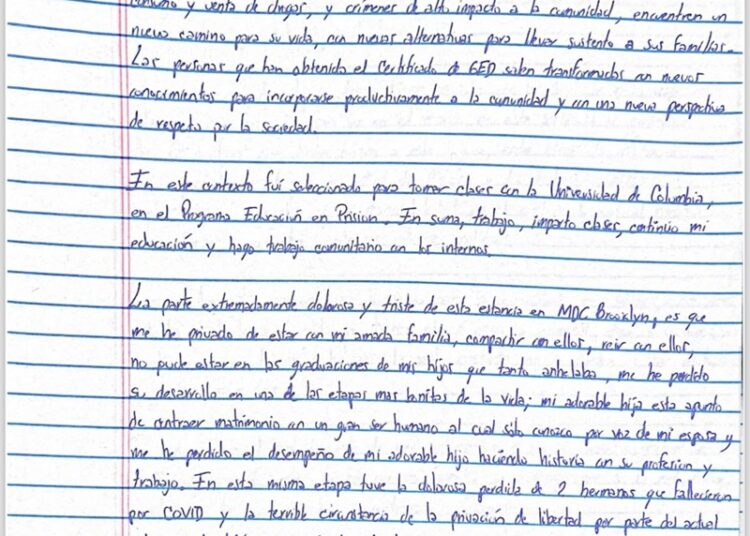 consumo y venta de drogas, y crimenes de alto impacto a la comunidad, encuentren un
nuevo camino para su vida, con nuevas alternativas para llevar sustento a sus familias.
Las personas que han obtenido el Certificado de GED salen transformados con nuevos
conocimientos para incorporarse productivamente a la comunidad y con una nueva perspectiva
de respeto por la sociedad.
En este contexto fuí seleccionado para tomar clases con la Universidad de Columbia,
en el Programa Educación en Prision. En suma, trabajo, imparto clases, continuo mi
educación y hago trabajo comunitario con los internos.
La parte extremadamente dolorosa y triste de esta estancia en MDC Brooklyn, es que
me he privado de estar con mi amada familia, compartir con ellos, reir con ellos,
no pude estar en las graduaciones de mis hijos que tanto anhelaba, me he perdido
su desarrollo en una de las etapas mas bonitas de la vida; mi adorable hija esta apunto
de contraer matrimonio con un gran ser humano al cual sólo conozco por voz de mi esposa y
me he perdido el desempeño de mi adorable hijo haciendo historia con su profesion y
trabajo. En esta misma etapa tuve la dolorosa perdida de 2 hermanos que fallecieron
por COVID y la terrible circunstancia de la privación de libertad por parte del actual